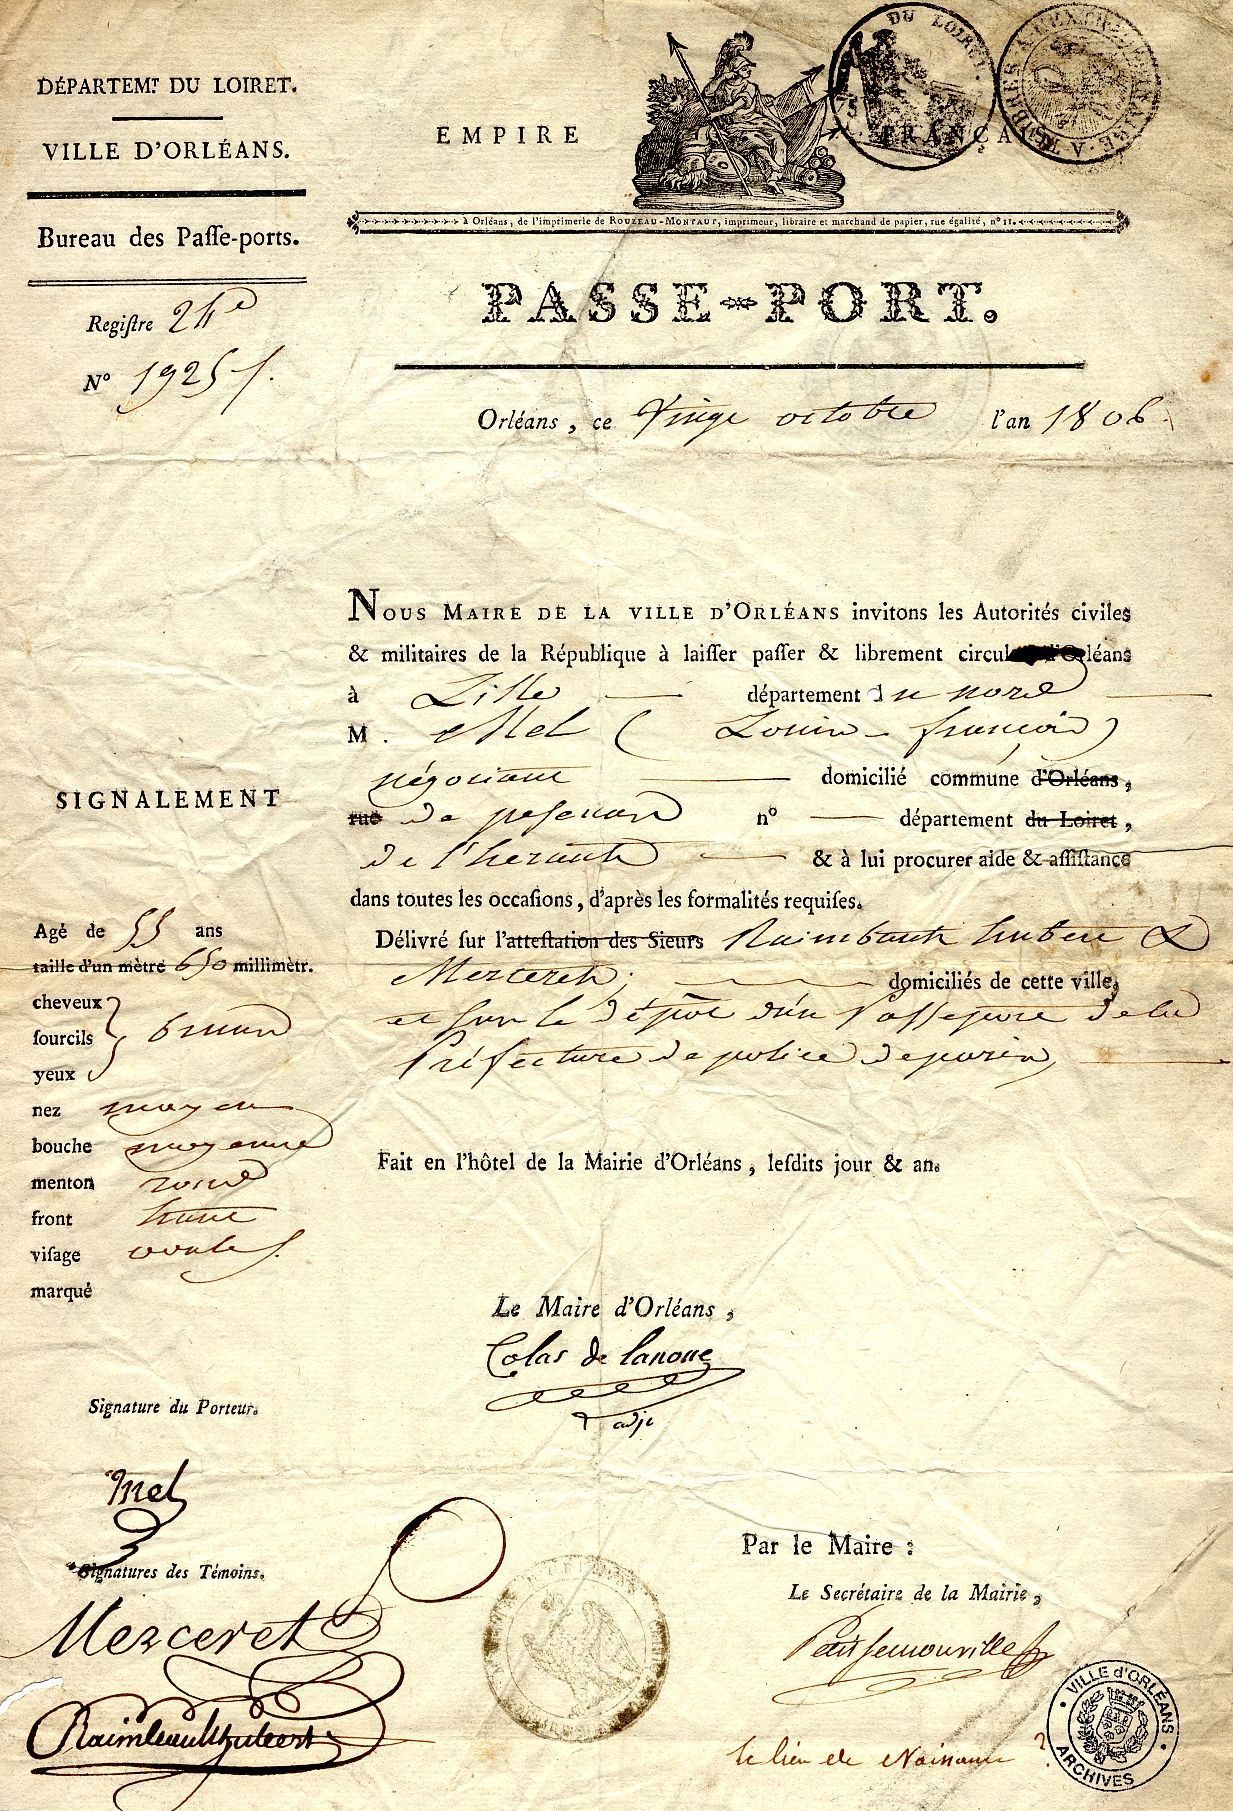 DÉPARTEM.T DU LOIRET.
VILLE D'ORLÉANS.
Bureau des Paſſe-ports.
Regiſtre 24e
N° 1925
EMPIRE FRANÇAIS
DU LOIRET.
à Orléans, de l'imprimerie de ROUZEAU-MONTAUT, imprimeur, libraire et marchand de papier, rue égalité, n° 11.
PASSE-PORT.
Orléans, ce Vingt octobre l'an 1806.
NOUS MAIRE DE LA VILLE D'ORLÉANS invitons les Autorités civiles
& militaires de la République à laiſſer paſſer & librement circuler d'Orléans
à Lille département du nord
M. Mel (Louis-françois)
négociant domicilié commune d'Orléans,
rue de pesenas n° département du Loiret,
de l'herault & à lui procurer aide & aſſiſtance
dans toutes les occaſions, d'après les formalités requiſes.
Délivré ſur l'atteſtation des Sieurs Raimbault hubert &
Mezceret, domiciliés de cette ville,
et sur le dépôt d'un Passeport de la
Préfecture de police de paris,
Fait en l'hôtel de la Mairie d'Orléans, leſdits jour & an.
SIGNALEMENT
Agé de 55 ans
taille d'un mètre 650 millimètr.
cheveux
ſourcils brun
yeux
nez moyen
bouche moyenne
menton rond
front haut
viſage ovale
marqué
Le Maire d'Orléans,
Colas de Lanoue
adjt
Signature du Porteur.
Mel
Signatures des Témoins.
Mezceret
Raimbault hubert
Par le Maire :
Le Secrétaire de la Mairie,
le lieu de Naissance ?
VILLE d'ORLÉANS
ARCHIVES